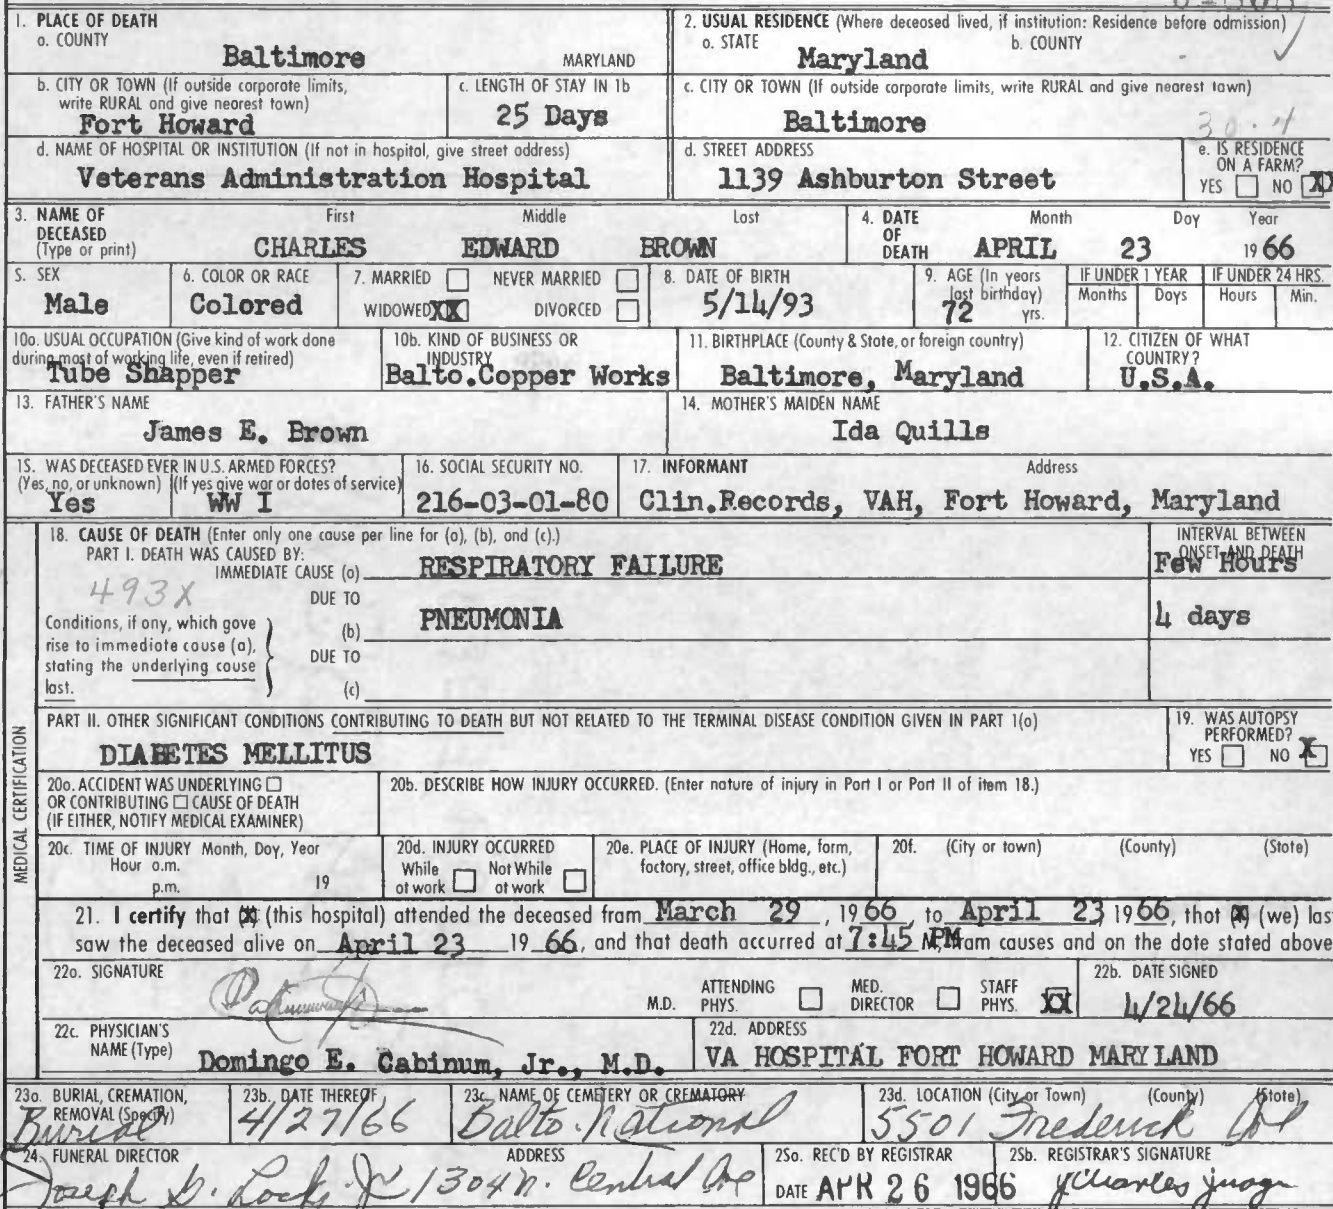 1. PLACE OF DEATH
a. COUNTY
Baltimore MARYLAND
2. USUAL RESIDENCE (Where deceased lived, if institution: Residence before admission)
a. STATE b. COUNTY
Maryland
b. CITY OR TOWN (If outside corporate limits, write RURAL and give nearest town)
Fort Howard
c. LENGTH OF STAY IN 1b
25 Days
c. CITY OR TOWN (If outside corporate limits, write RURAL and give nearest town)
Baltimore
30.4
d. NAME OF HOSPITAL OR INSTITUTION (If not in hospital, give street address)
Veterans Administration Hospital
d. STREET ADDRESS
1139 Ashburton Street
e. IS RESIDENCE ON A FARM?
YES NO XX
3. NAME OF DECEASED (Type or print)
First Middle Last
CHARLES EDWARD BROWN
4. DATE OF DEATH
Month Day Year
APRIL 23 1966
5. SEX
Male
6. COLOR OR RACE
Colored
7. MARRIED NEVER MARRIED
WIDOWED XX DIVORCED
8. DATE OF BIRTH
5/14/93
9. AGE (In years last birthday)
72 yrs.
IF UNDER 1 YEAR
Months Days
IF UNDER 24 HRS.
Hours Min.
10a. USUAL OCCUPATION (Give kind of work done during most of working life, even if retired)
Tube Shapper
10b. KIND OF BUSINESS OR INDUSTRY
Balto.Copper Works
11. BIRTHPLACE (County & State, or foreign country)
Baltimore, Maryland
12. CITIZEN OF WHAT COUNTRY?
U.S.A.
13. FATHER'S NAME
James E. Brown
14. MOTHER'S MAIDEN NAME
Ida Quills
15. WAS DECEASED EVER IN U.S. ARMED FORCES?
(Yes, no, or unknown) (If yes give war or dates of service)
Yes WW I
16. SOCIAL SECURITY NO.
216-03-01-80
17. INFORMANT Address
Clin.Records, VAH, Fort Howard, Maryland
MEDICAL CERTIFICATION
18. CAUSE OF DEATH (Enter only one cause per line for (a), (b), and (c).)
PART I. DEATH WAS CAUSED BY:
IMMEDIATE CAUSE (a) RESPIRATORY FAILURE
INTERVAL BETWEEN ONSET AND DEATH
Few Hours
493X
Conditions, if any, which gave rise to immediate cause (a), stating the underlying cause last.
DUE TO
(b) PNEUMONIA
4 days
DUE TO
(c)
PART II. OTHER SIGNIFICANT CONDITIONS CONTRIBUTING TO DEATH BUT NOT RELATED TO THE TERMINAL DISEASE CONDITION GIVEN IN PART 1(a)
DIABETES MELLITUS
19. WAS AUTOPSY PERFORMED?
YES NO X
20a. ACCIDENT WAS UNDERLYING
OR CONTRIBUTING CAUSE OF DEATH
(IF EITHER, NOTIFY MEDICAL EXAMINER)
20b. DESCRIBE HOW INJURY OCCURRED. (Enter nature of injury in Part I or Part II of item 18.)
20c. TIME OF INJURY Month, Day, Year
Hour a.m.
p.m. 19
20d. INJURY OCCURRED
While at work Not While at work
20e. PLACE OF INJURY (Home, farm, factory, street, office bldg., etc.)
20f. (City or town) (County) (State)
21. I certify that (X) (this hospital) attended the deceased from March 29, 1966, to April 23 1966, that (X) (we) las
saw the deceased alive on April 23 1966, and that death occurred at 7:45 PM, from causes and on the date stated above
22a. SIGNATURE
M.D.
ATTENDING PHYS.
MED. DIRECTOR
STAFF PHYS. XX
22b. DATE SIGNED
4/24/66
22c. PHYSICIAN'S NAME (Type)
Domingo E. Cabinum, Jr., M.D.
22d. ADDRESS
VA HOSPITAL FORT HOWARD MARYLAND
23a. BURIAL, CREMATION, REMOVAL (Specify)
Burial
23b. DATE THEREOF
4/27/66
23c. NAME OF CEMETERY OR CREMATORY
Balto. National
23d. LOCATION (City or Town) (County) (State)
5501 Frederick Ave
24. FUNERAL DIRECTOR ADDRESS
Joseph G. Locks Jr 1304 N. Central Ave
25a. REC'D BY REGISTRAR
DATE APR 26 1966
25b. REGISTRAR'S SIGNATURE
Charles